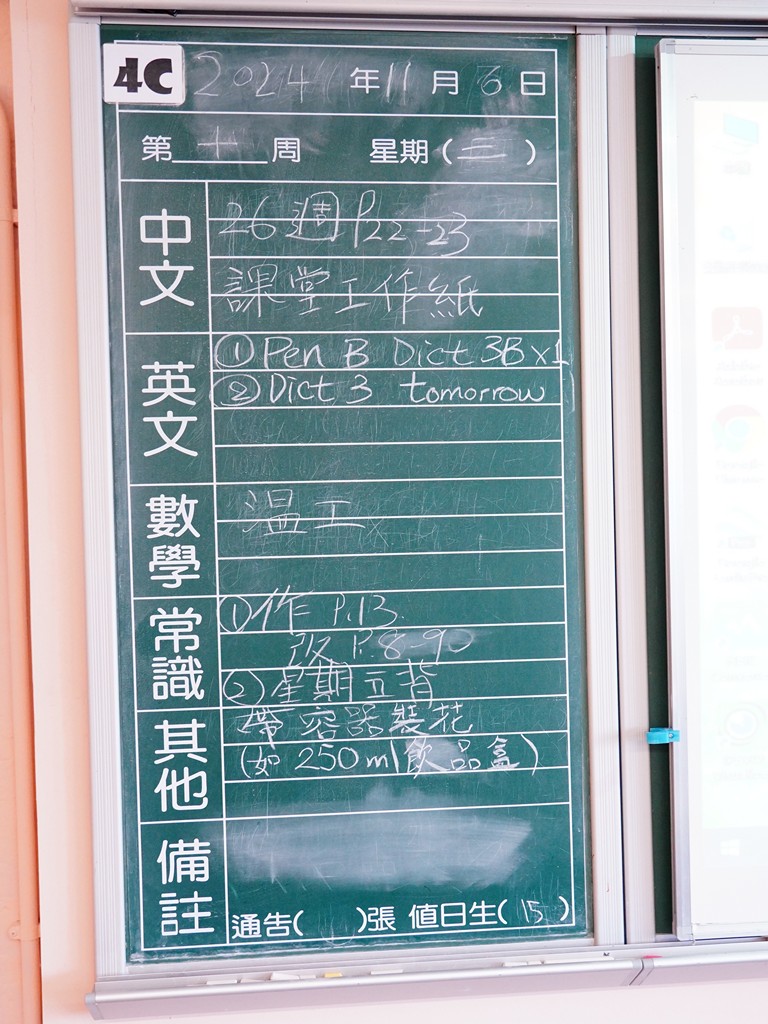 4C 2024年11月6日
第十周 星期(三)
中文
26週 P22-23
課堂工作紙
英文
① Pen B Dict 3B x1
② Dict 3 tomorrow
數學
温工
常識
① 作 P.13
改 P.8-90
② 星期五背
其他
帶容器裝花
(如 250ml飲品盒)
備註
通告( )張 值日生(15)